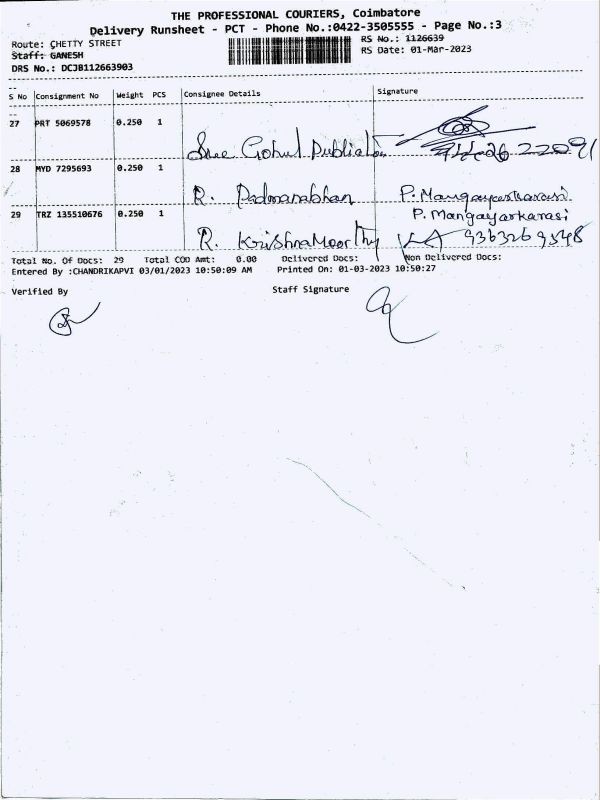 THE PROFESSIONAL COURIERS, Coimbatore
Delivery Runsheet - PCT - Phone No.:0422-3505555 - Page No.:3
Route: CHETTY STREET RS No.: 1126639
Staff: GANESH RS Date: 01-Mar-2023
DRS No.: DCJB112663903
S No Consignment No Weight PCS Consignee Details Signature
27 PRT 5069578 0.250 1
Sree Gokul Publication
28 MYD 7295693 0.250 1
R. Padmanabhan P. Mangayarkarasi
29 TRZ 135510676 0.250 1 P. Mangayarkarasi
R. Krishnamoorthy 9363269548
Total No. Of Docs: 29 Total COD Amt: 0.00 Delivered Docs: Non Delivered Docs:
Entered By :CHANDRIKAPVI 03/01/2023 10:50:09 AM Printed On: 01-03-2023 10:50:27
Verified By Staff Signature